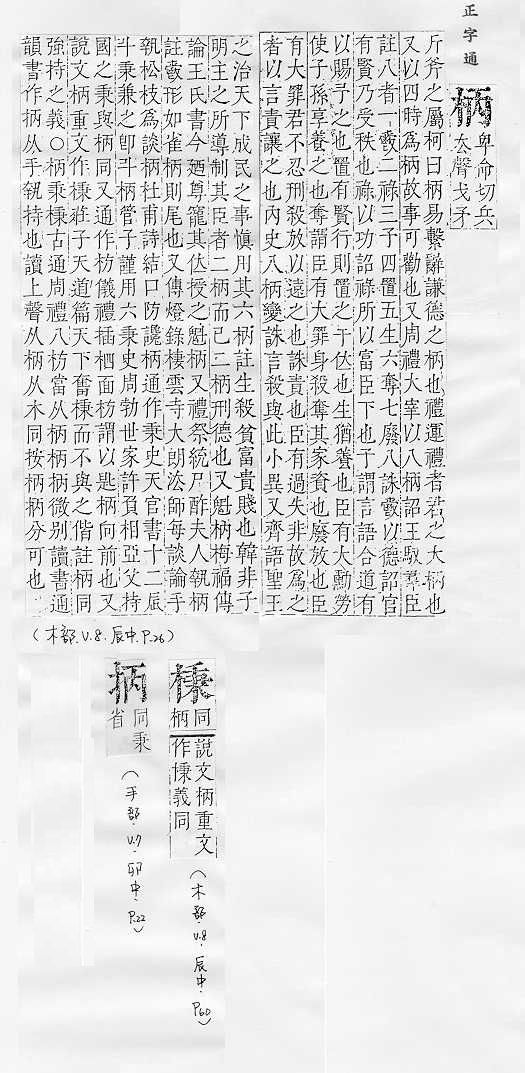 正字通
柄 卑命切兵
去聲戈矛
斤斧之屬柯曰柄易繫辭謙德之柄也禮運禮者君之大柄也
又以四時爲柄故事可勸也又周禮大宰以八柄詔王馭羣臣
註八者一爵二祿三予四置五生六奪七廢八誅爵以德詔官
有賢乃受秩也祿以功詔祿所以富臣下也予謂言語合道有
以賜予之也置有賢行則置之于位也生猶養也臣有大勳勞
使子孫享養之也奪謂臣有大罪身殺奪其家資也廢放也臣
有大罪君不忍刑殺放以遠之也誅責也臣有過失非故爲之
者以言責讓之也内史八柄變誅言殺與此小異又齊語聖王
之治天下成民之事愼用其六柄註生殺貧富貴賤也韓非子
明主之所導制其臣者二柄而已二柄刑德也又魁柄梅福傳
論王氏書今迺尊寵其位授之魁柄又禮祭統尸酢夫人執柄
註爵形如雀柄則尾也又傳燈錄棲雲寺大朗法師每談論手
執松枝爲談柄杜甫詩結口防讒柄通作秉史天官書十二辰
斗秉兼之卽斗柄管子謹用六秉史周勃世家許負相亞父持
國之秉與柄同又通作枋儀禮插柶面枋謂以匙柄向前也又
說文柄重文作棅莊子天道篇天下奮棅而不與之偕註柄同
強持之義○柄秉棅古通周禮八枋當从柄抦柄微别讀書通
韻書作抦从手執持也讀上聲从柄从木同按柄抦分可也
(木部.V.8.辰中.P.26)
棅 同柄
說文柄重文
作棅義同
(木部.V.8.辰中.P.60)
抦 同秉
省
(手部.V.7.卯中.P.22)